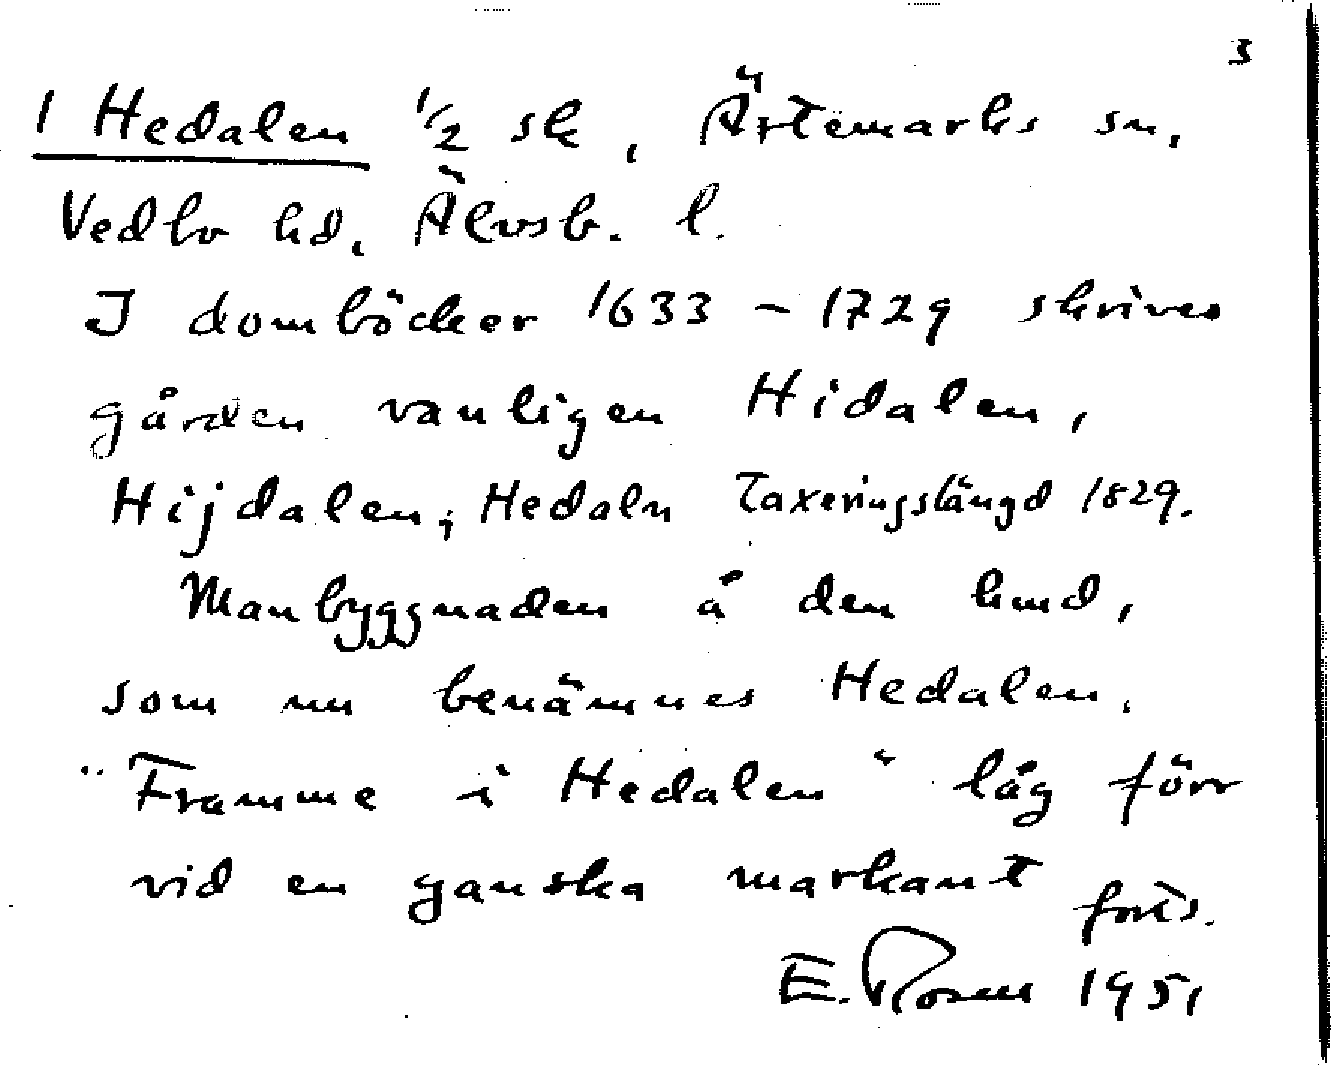 3
1 Hedalen 1/2 sk, Ärtemarks sn,
Vedbo hd, Älvsb. l.
I domböcker 1633 - 1729 skrives
gården vanligen Hidalen,
Hijdalen; Hedaln Taxeringslängd 1829.
Manbyggnaden å den hmd,
som nu benämnes Hedalen.
"Framme i Hedalen" låg förr
vid en ganska markant
forts.
E. Rosell 1951